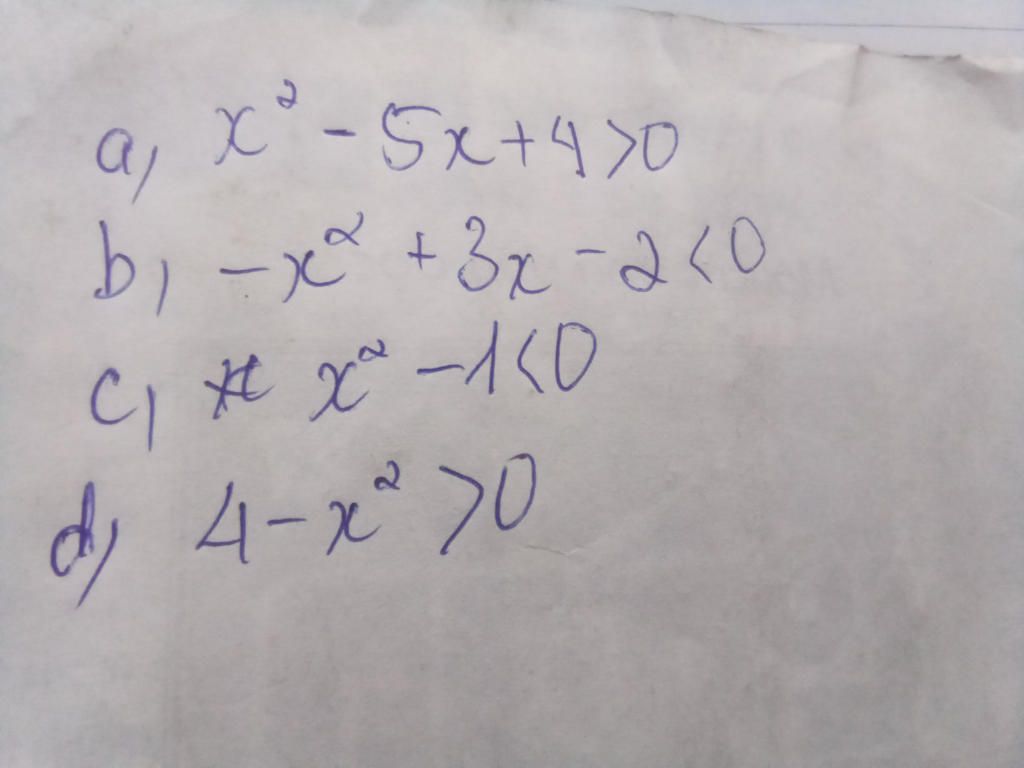 a, x² - 5x + 4 > 0
b, -x² + 3x - 2 < 0
c, x² - 1 < 0
d, 4 - x² > 0